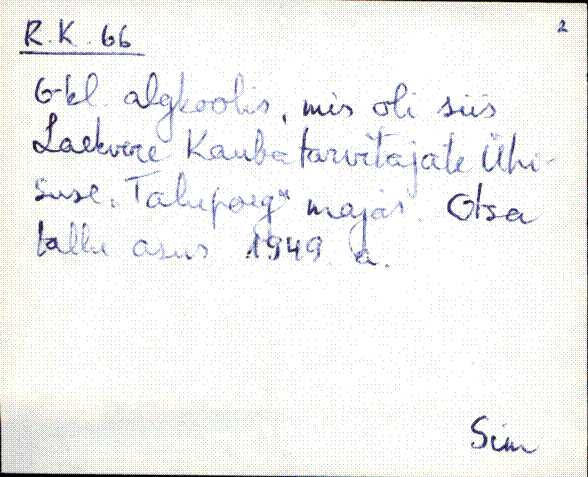 R.K. 66
2
6-kl. algkoolis, mis oli siis
Laekvere Kaubatarvitajate Ühi-
suse „Talupoeg" majas. Otsa
tallu asus 1949. a.
Sim